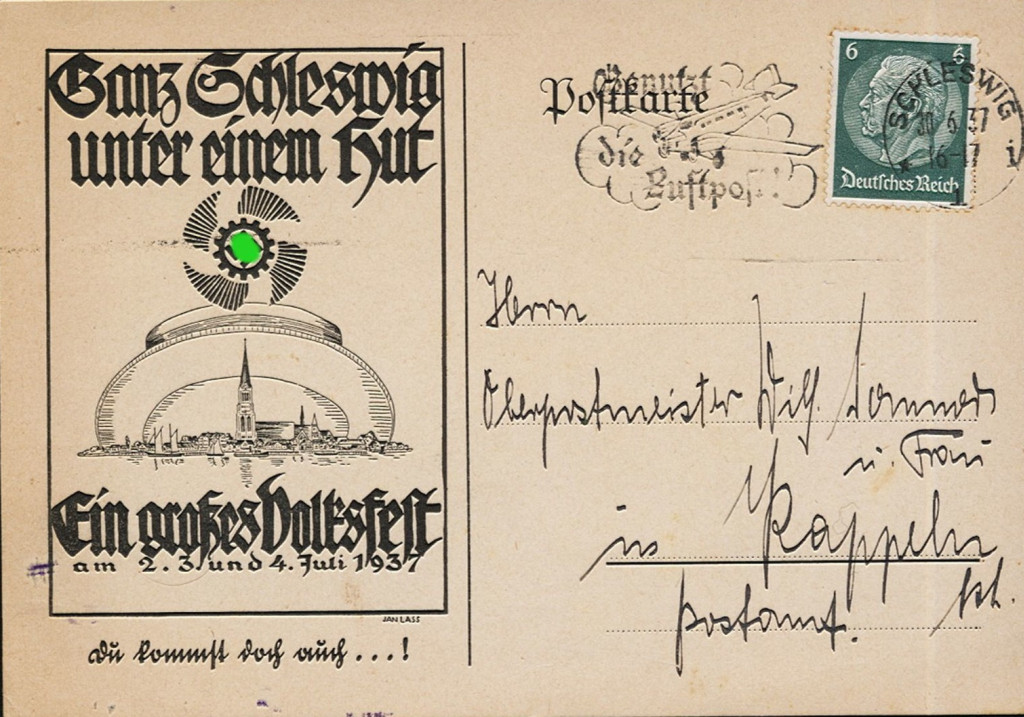 Ganz Schleswig
unter einem Hut
Ein großes Volksfest
am 2. 3. und 4. Juli 1937
JAN LASS
Du kommst doch auch...!
Postkarte
Benutzt
die
Luftpost!
6 6
Deutsches Reich
SCHLESWIG
30.6.37
16-17
1
i
Herrn
Oberpostmeister Wilh.
u. Frau
in Kappeln
Postamt.